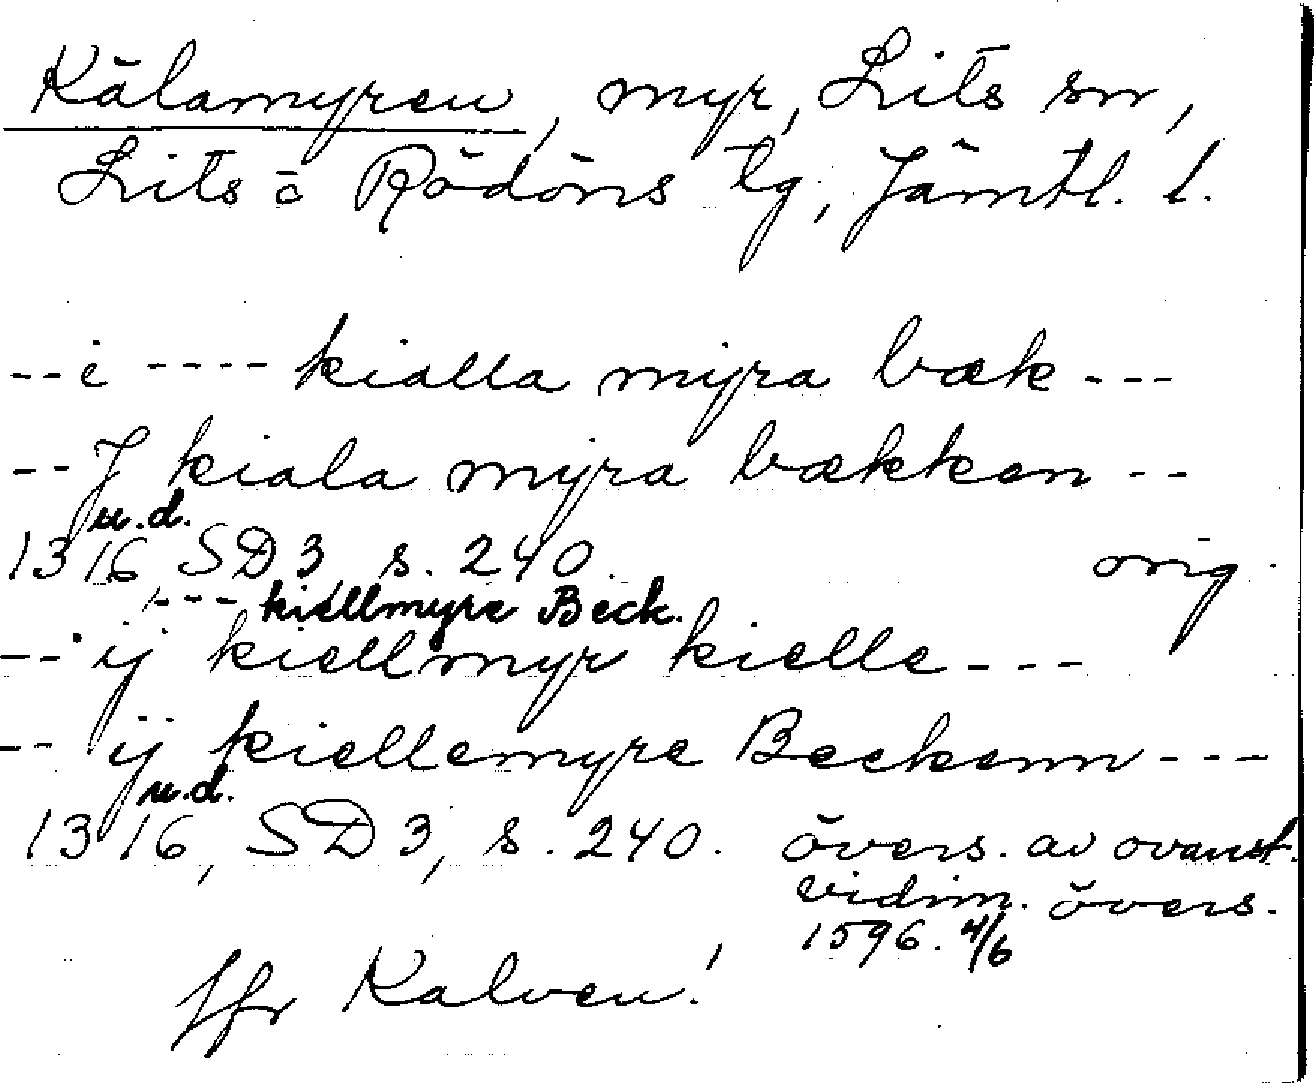 Kälamyren, myr, Lits sn,
Lits o Rödöns tg, Jämtl. l.
--i ---- kialla myra bæk ---
--J kiala myra bækken --
u.d.
1316 SD 3 s. 240. orig.
--- kiellmyre Beck.
-- ij kiellmyr kielle ---
-- ij kiellemyre Beckenn ---
u.d.
1316, SD 3, s. 240. övers. av ovanst.
vidim. övers.
1596. 4/6
Jfr Kalven!